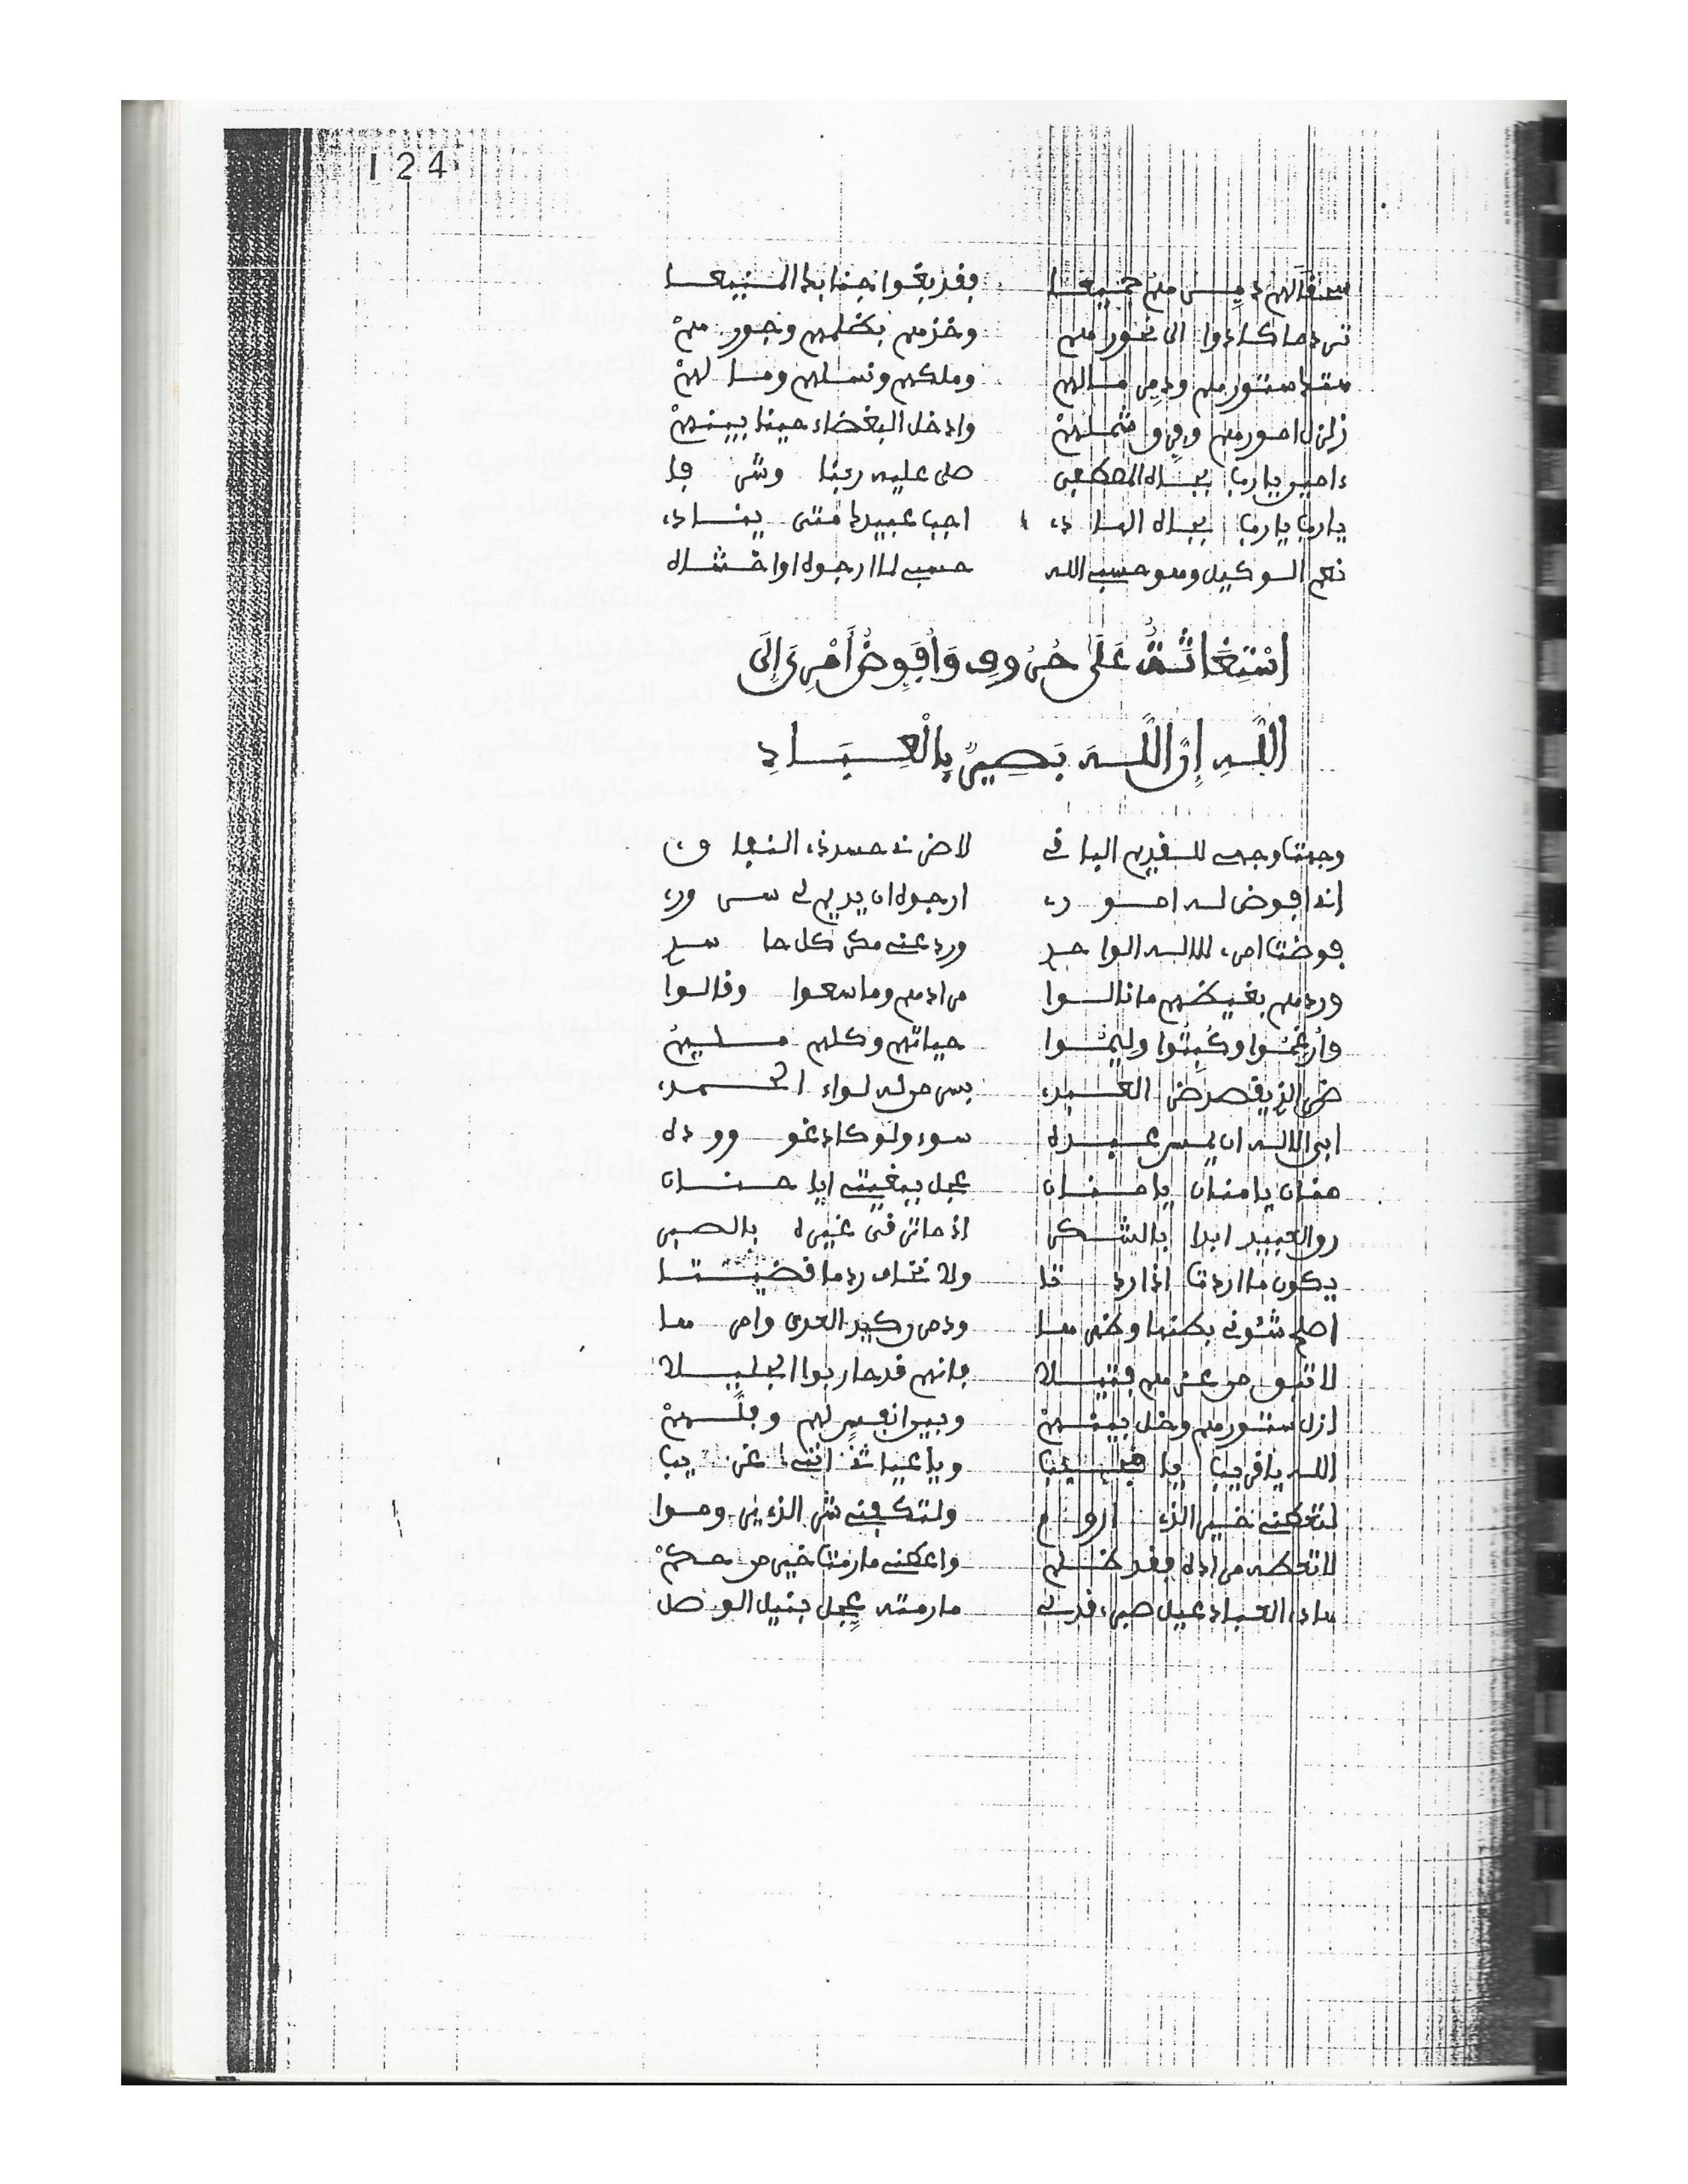 124
سحقا لهم دمرهم جميعا فقد بغوا جنابك المنيعا
ترد ما كادوا الى نحورهم وخذهم بظلمهم وجورهم
هتك ستورهم ودمر مالهم وملكهم ونسلهم وما لهم
زلزل امورهم وفرق شملهم وادخل البغضاء حينا بينهم
ءامين يا رب بجاه المصطفى صلى عليه ربنا وشرفا
يا رب يا رب بجاه الهادي اجب عبيدك متى ينادي
نعم الوكيل وهو حسبي الله حسبي لما ارجوه او اخشاه
اسْتِغَاثَةٌ عَلَى حُرُوفِ وَأُفَوِّضُ أَمْرِيَ إِلَى
اللَّهِ إِنَّ اللَّهَ بَصِيرٌ بِالْعِبَادِ
وجهت وجهي للقديم الباقي لا ضرني حسد ذي النفاق
انا افوض له اموري ارجوه ان يديم لي سروري
فوضت امري للاله الواحد ورد عني مكر كل حاسد
وردهم بغيظهم ما نالوا مرادهم وما سعوا وقالوا
وأرغموا وكبتوا وليموا حياتهم وكلهم مليم
ضر الذي قصد ضر العبد بسر من له لواء الحمد
ابى الاله ان يمس عبده سوء ولو كاد عدو وده
منان يا منان يا حنان عجل ببغيتي ايا حنان
رو العبيد ابدا بالشكر اذ مات في غيره بالصبر
يكون ما اردت اذا اردتا ولا نخاف رد ما قضيتا
اصلح شئوني بطنها وظهرها ودمر كيد العدى وامرها
لا تبق من عزهم فتيلا فانهم قد حاربوا الجليلا
ازل ستورهم وخل بينهم وبين انفس لهم وفلهم
الله يا قريب يا مجيب ويا غياث انني غريب
لتعطني خير الذي اروم ولتكفني شر الذي يروموا
لا تعطه مراده فقد ظلم واعطني ما رمت خير من حكم
هادي العباد عيل صبري قد لي ما رمته عجل بنيل الوصل